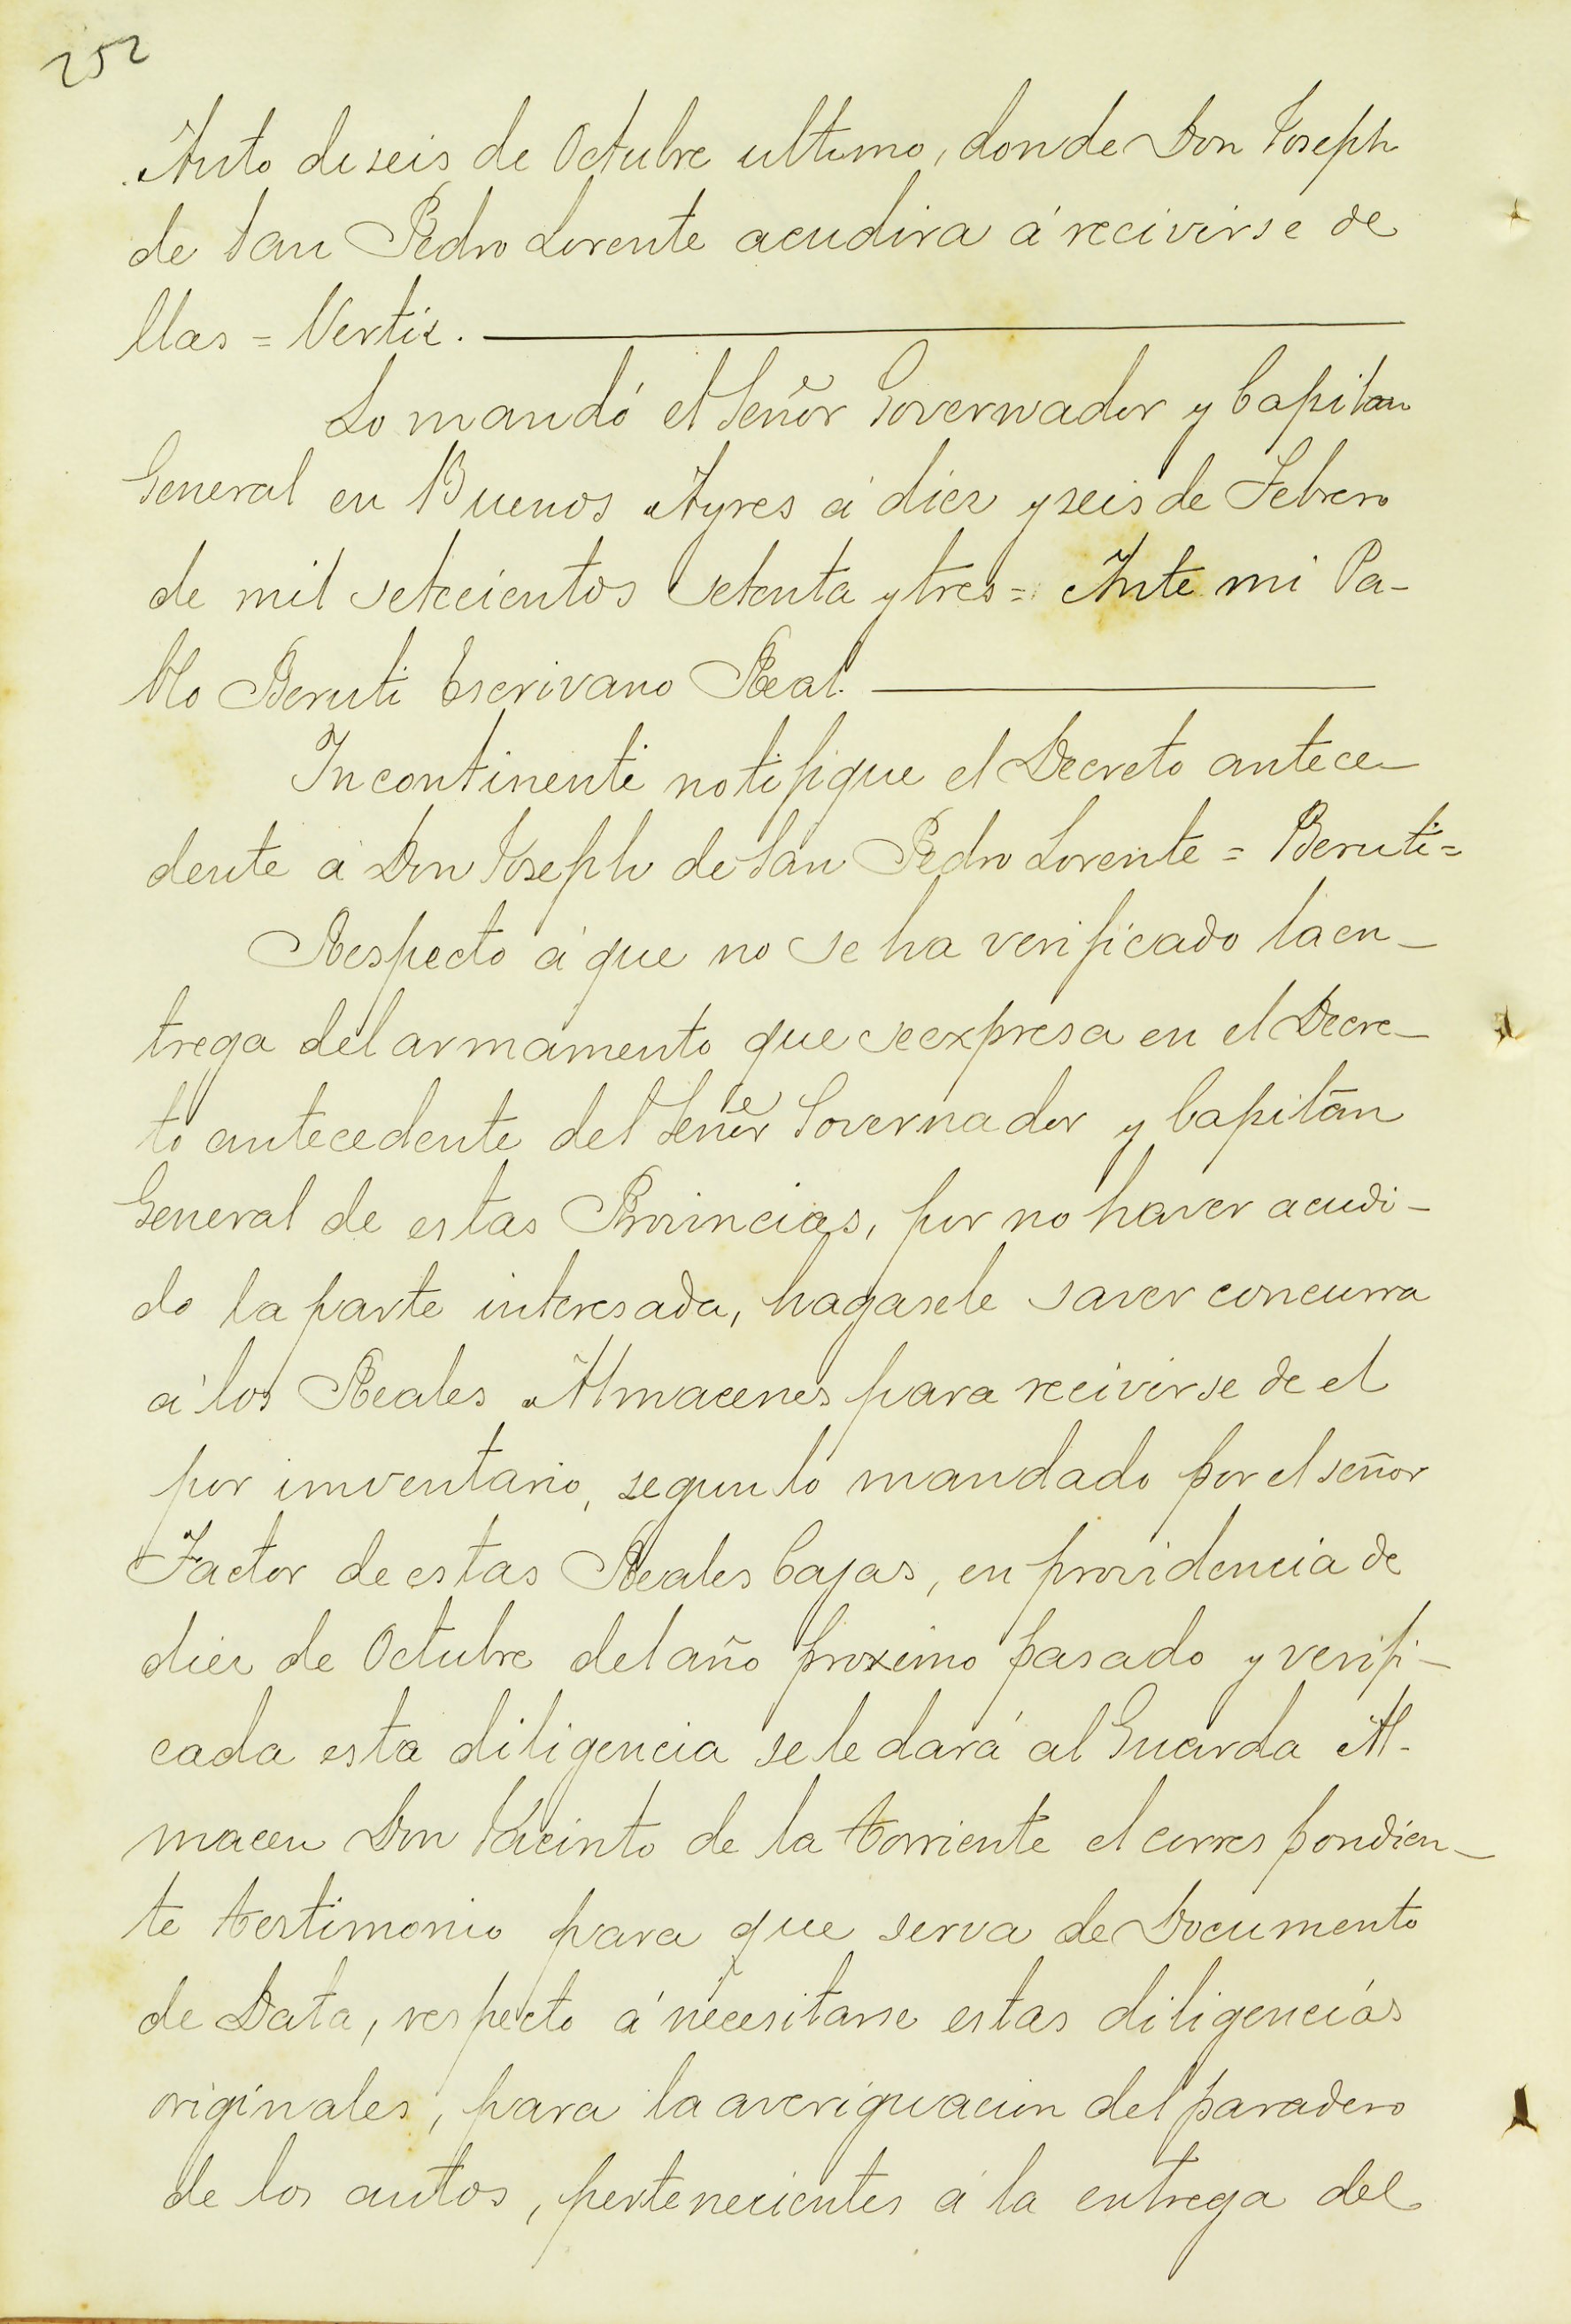 252
Auto de seis de Octubre ultimo, donde Don Joseph
de San Pedro Lorente acudira á recivirse de
llas = Vertiz.
Lo mandó el Señor Governador y Capitan
General en Buenos Ayres á diez y seis de Febrero
de mil setecientos setenta y tres = Ante mi Pa-
blo Beruti Escrivano Real.
Incontinenti notifique el Decreto antece-
dente á Don Joseph de San Pedro Lorente = Beruti =
Respecto á que no se ha verificado la en-
trega del armamento que se expresa en el Decre-
to antecedente del Señor Governador y Capitán
General de estas Provincias, por no haver acudi-
do la parte interesada, hagasele saver concurra
á los Reales Almacenes para recivirse de el
por imventario, segun lo mandado por el señor
Factor de estas Reales Cajas, en providencia de
diez de Octubre del año proximo pasado y verifi-
cada esta diligencia se le dará al Guarda Al-
macen Don Jacinto de la torriente el correspondien-
te testimonio para que serva de Documento
de Data, respecto á necesitarse estas diligencias
originales, para la averiguacion del paradero
de los autos, pertenecientes á la entrega del